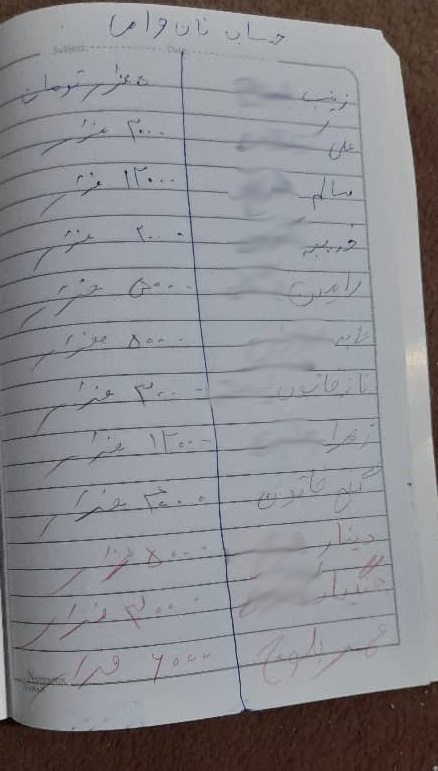 حساب نان وامی
Subject: Date:
زینب ۵ هزار تومان
علی ۳۰۰۰ هزار
سالم ۱۲۰۰۰ هزار
خدیجه ۲۰۰۰ هزار
رامین ۵۰۰۰ هزار
۸۰۰۰ هزار
نازخاتون ۳۰۰۰ هزار
زهرا ۱۲۰۰۰ هزار
گل خاتون هزار
دینار ۵۰۰۰ هزار
۳۰۰۰ هزار
عمر بلوچ ۶۰۰۰ هزار